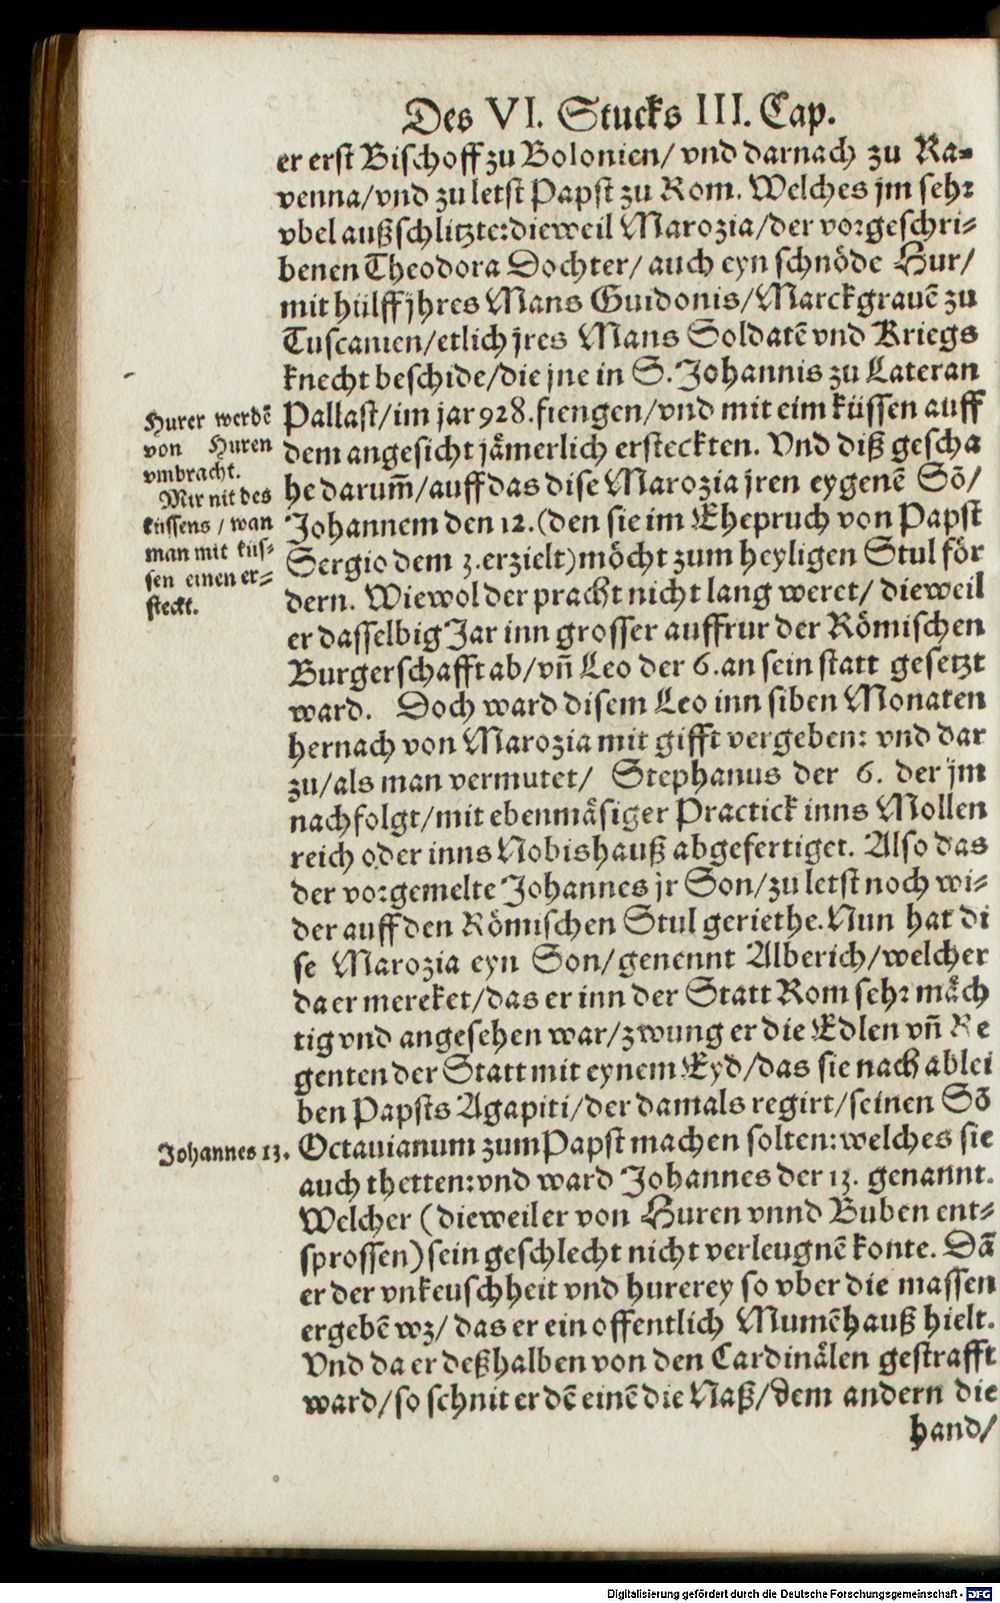 Des VI. Stucks III. Cap.
er erst Bischoff zu Bolonien/ vnd darnach zu Ra⸗
venna/vnd zu letst Papst zu Rom. Welches jm sehr
vbel außschlitzte:dieweil Marozia/der vorgeschri⸗
benen Theodora Dochter/ auch eyn schnöde Hur/
mit hülff jhres Mans Guidonis/Marckgrauẽ zu
Tuscanien/etlich jres Mans Soldatẽ vnd Kriegs
knecht beschide/die jne in S. Johannis zu Lateran
Pallast/im jar 928. fiengen/vnd mit eim küssen auff
dem angesicht jämerlich ersteckten. Vnd diß gescha
he darum̃/auff das dise Marozia jren eygenẽ Sõ/
Johannem den 12.(den sie im Ehepruch von Papst
Sergio dem 3.erzielt)möcht zum heyligen Stul för
dern. Wiewol der pracht nicht lang weret/ dieweil
er dasselbig Jar inn grosser auffrur der Römischen
Burgerschafft ab/vñ Leo der 6.an sein statt gesetzt
ward. Doch ward disem Leo inn siben Monaten
hernach von Marozia mit gifft vergeben: vnd dar
zu/als man vermutet/ Stephanus der 6. der jm
nachfolgt/mit ebenmäsiger Practick inns Mollen
reich oder inns Nobishauß abgefertiget. Also das
der vorgemelte Johannes jr Son/zu letst noch wi⸗
der auff den Römischen Stul geriethe. Nun hat di
se Marozia eyn Son/genennt Alberich/welcher
da er mereket/das er inn der Statt Rom sehr mäch
tig vnd angesehen war/zwung er die Edlen vñ Re
genten der Statt mit eynem Eyd/das sie nach ablei
ben Papsts Agapiti/der damals regirt/seinen Sõ
Octauianum zum Papst machen solten:welches sie
auch thetten:vnd ward Johannes der 13. genannt.
Welcher (dieweil er von Huren vnnd Buben ent⸗
sprossen)sein geschlecht nicht verleugnẽ konte. Dã
er der vnkeuschheit vnd hurerey so vber die massen
ergebẽ wz/ das er ein offentlich Mumẽhauß hielt.
Vnd da er deßhalben von den Cardinälen gestrafft
ward/so schnit er dẽ einẽ die Naß/dem andern die
hand/
Hurer werdẽ
von Huren
vmbracht.
Mir nit des
küssens / wan
man mit küs⸗
sen einen er⸗
steckt.
Johannes 13.
Digitalisierung gefördert durch die Deutsche Forschungsgemeinschaft - DFG